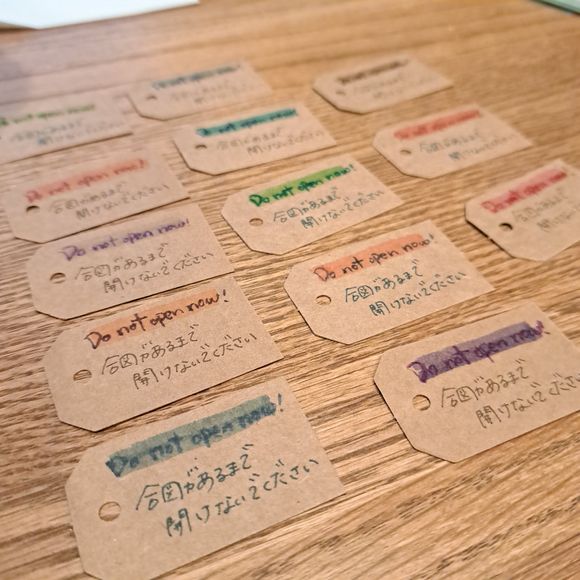 Do not open now!
合図があるまで
開けないでください
Do not open now!
合図があるまで
開けないでください
Do not open now!
合図があるまで
開けないでください
Do not open now!
合図があるまで
開けないでください
Do not open now!
合図があるまで
開けないでください
Do not open now!
合図があるまで
開けないでください
Do not open now!
合図があるまで
開けないでください
Do not open now!
合図があるまで
開けないでください
Do not open now!
合図があるまで
開けないでください